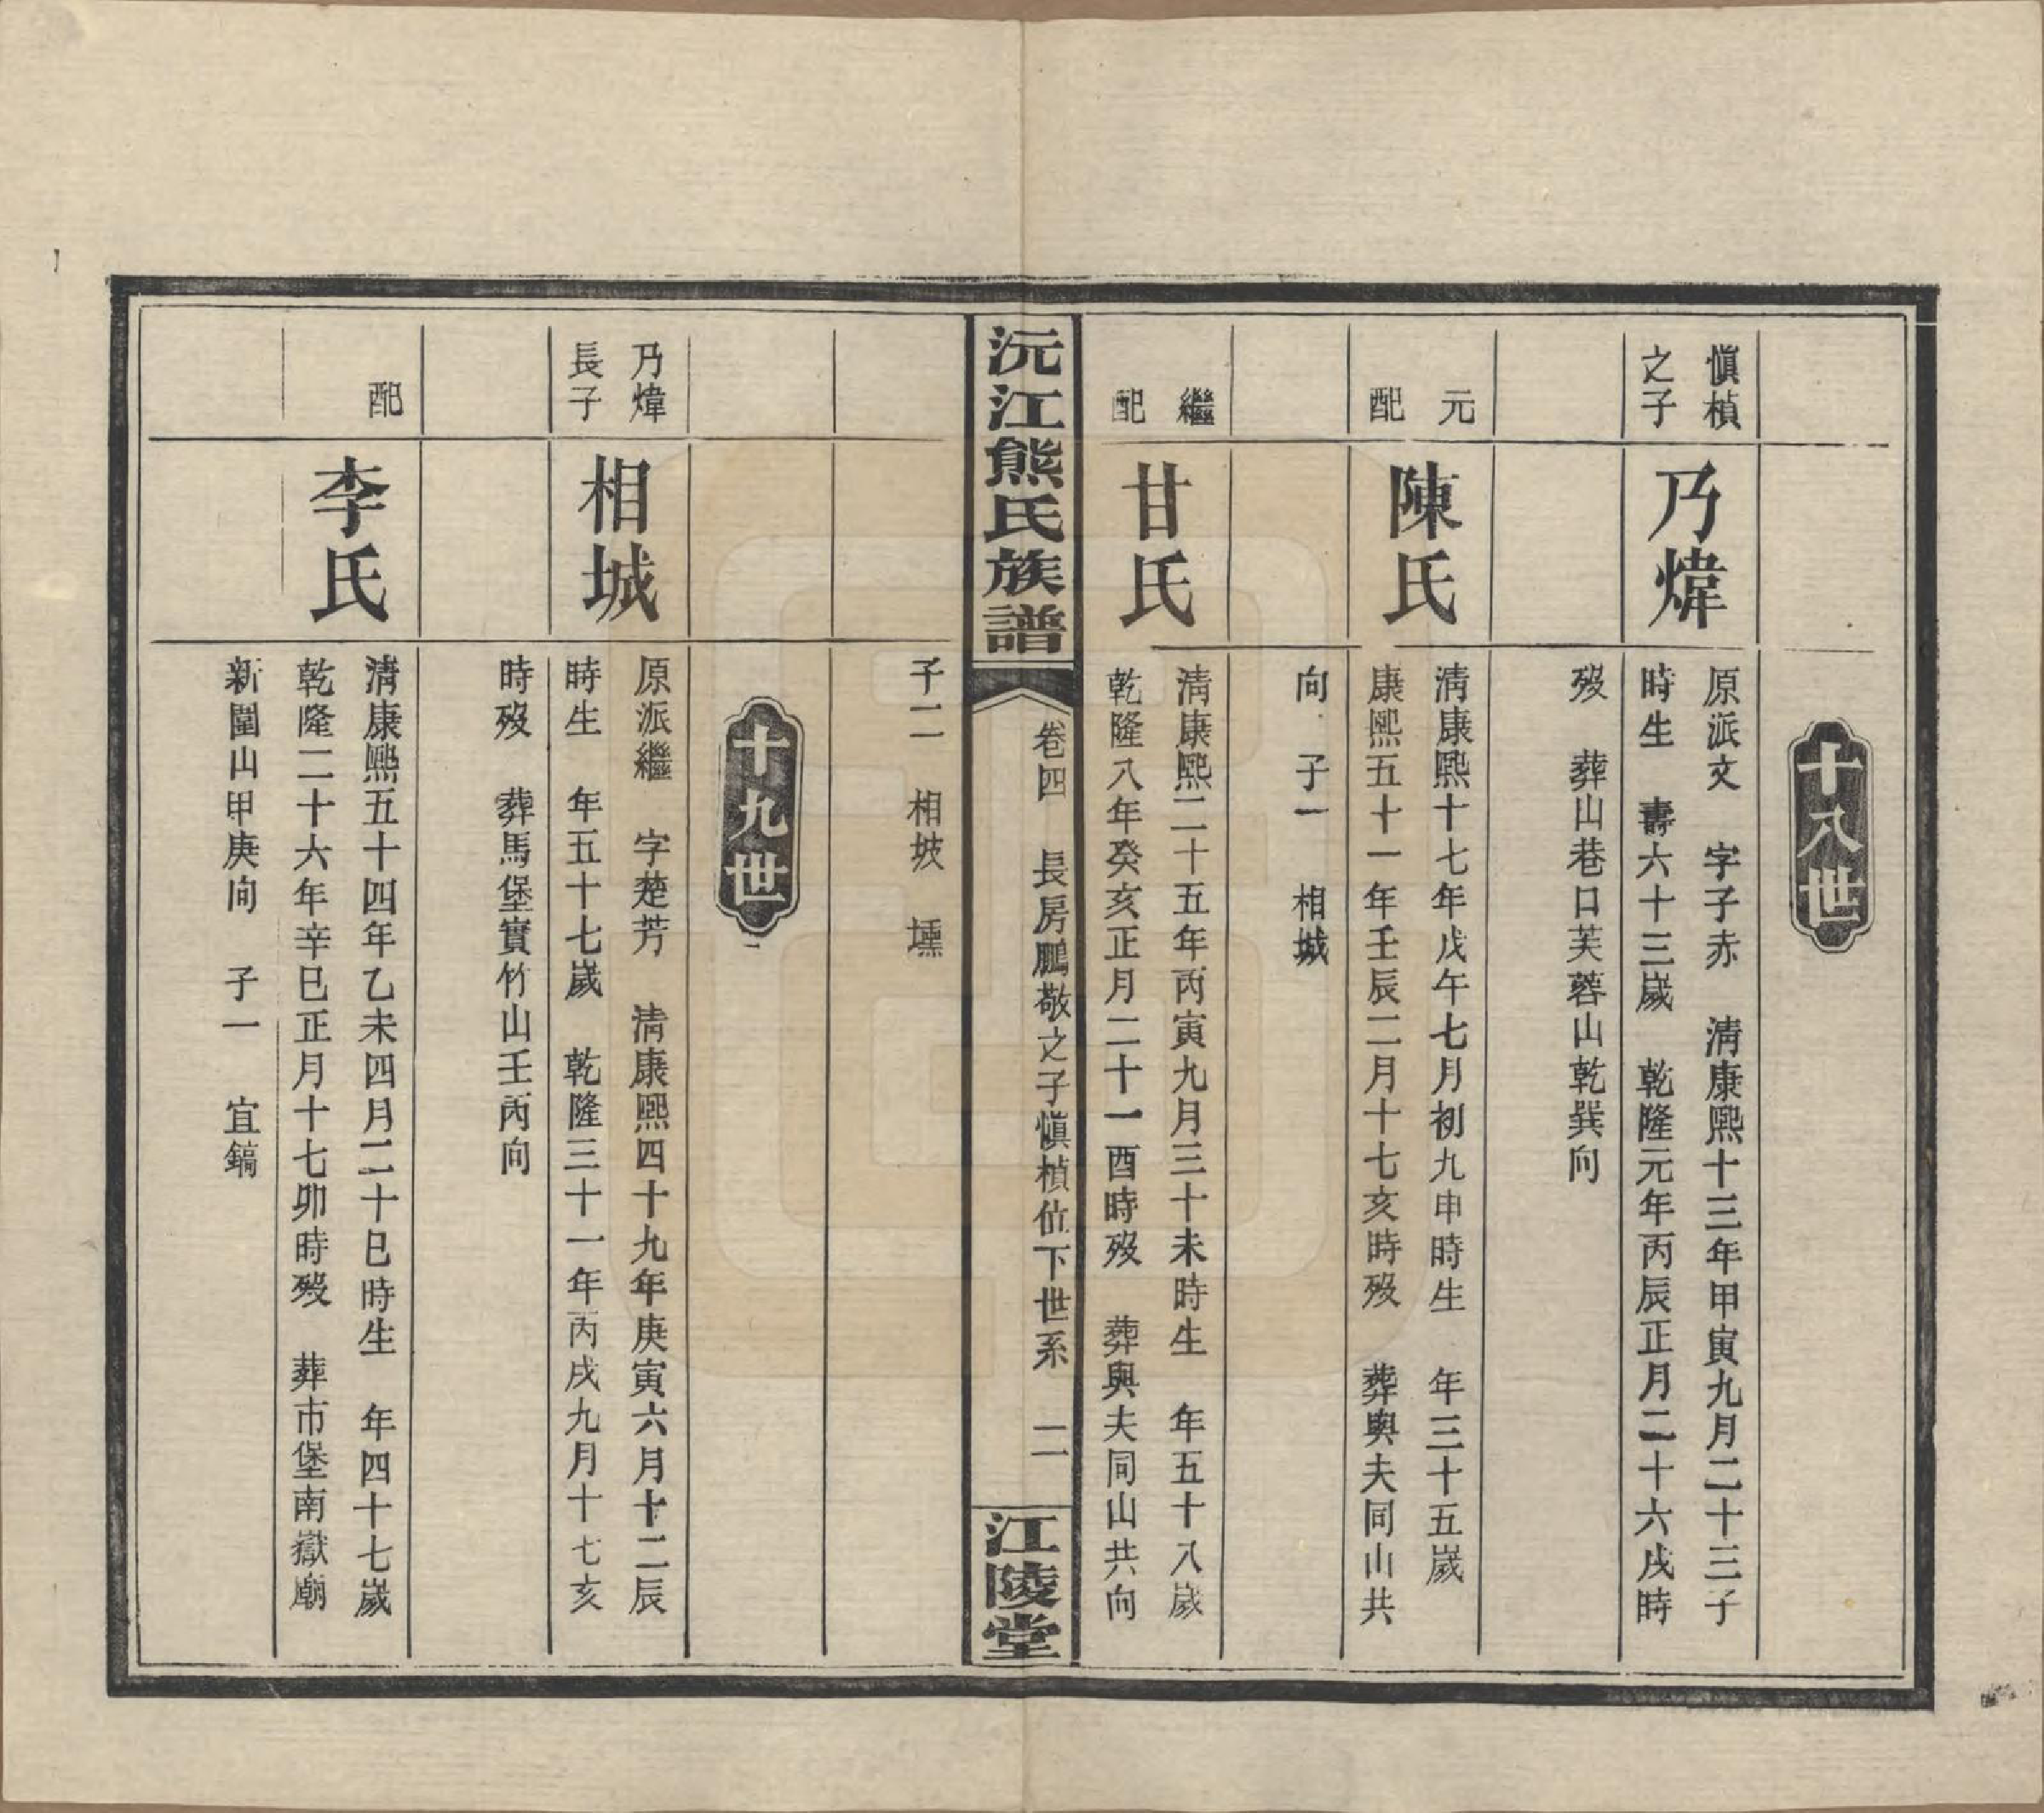 十八世
慎楨
之子
乃煒
原派文　字子赤　清康熙十三年甲寅九月二十三子
時生　壽六十三歲　乾隆元年丙辰正月二十六戌時
歿　葬山巷口芙蓉山乾巽向
元
配
陳氏
清康熙十七年戊午七月初九申時生　年三十五歲
康熙五十一年壬辰二月十七亥時歿　葬與夫同山共
向　子一　相城
繼
配
甘氏
清康熙二十五年丙寅九月三十未時生　年五十八歲
乾隆八年癸亥正月二十一酉時歿　葬與夫同山共向
沅江熊氏族譜
卷四　長房鵬敬之子慎楨位下世系　二
江陵堂
子二　相坡　壎
十九世
乃煒
長子
相城
原派繼　字楚芳　清康熙四十九年庚寅六月十二辰
時生　年五十七歲　乾隆三十一年丙戌九月十七亥
時歿　葬馬堡實竹山壬丙向
配
李氏
清康熙五十四年乙未四月二十巳時生　年四十七歲
乾隆二十六年辛巳正月十七卯時歿　葬市堡南嶽廟
新圍山甲庚向　子一　宜鎬